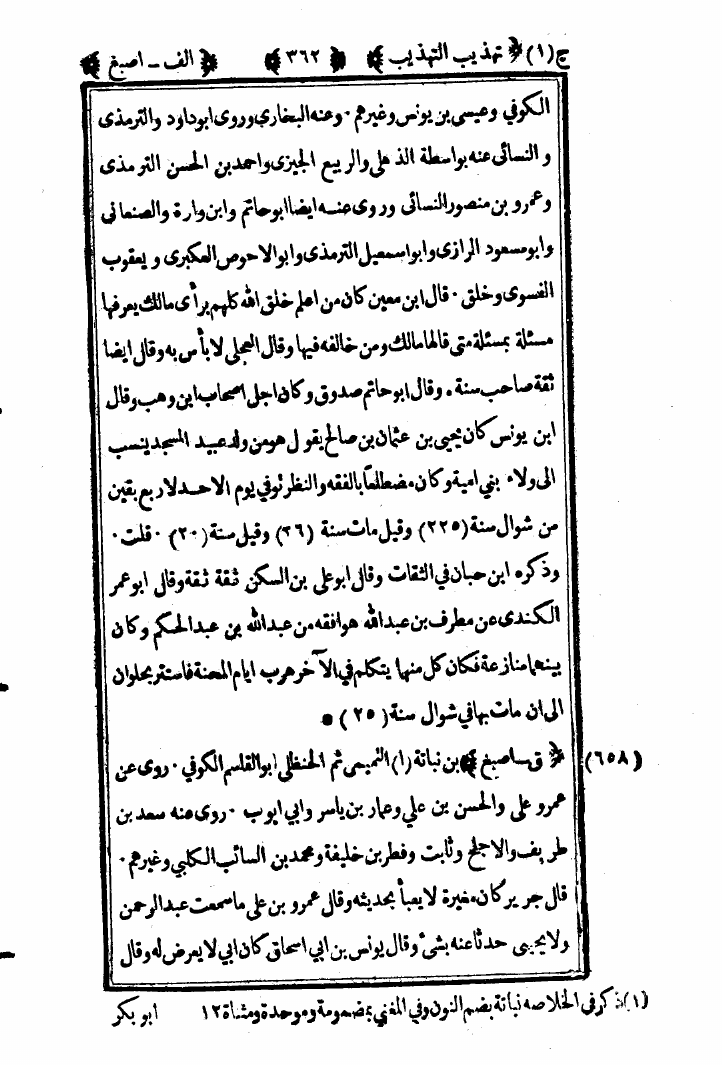 ج(١) ﴿ تهذيب التهذيب ﴾ ﴿ ٣٦٢ ﴾ ﴿ الف - اصبغ ﴾
الكوفي وعيسى بن يونس وغيرهم . وعنه البخاري وروى ابو داود والترمذى
والنسائى عنه بواسطة الذهلى والربيع الجيزى واحمد بن الحسن الترمذى
وعمرو بن منصور النسائى وروى عنه ايضا ابو حاتم وابن وارة والصنعانى
وابو مسعود الرازى وابو اسمعيل الترمذى وابو الاحوص العكبرى ويعقوب
الفسوى وخلق . قال ابن معين كان من اعلم خلق الله كلهم برأى مالك يعرفها
مسئلة بمسئلة متى قالها مالك ومن خالفه فيها وقال العجلى لا بأس به وقال ايضا
ثقة صاحب سنة . وقال ابو حاتم صدوق وكان اجل اصحاب ابن وهب وقال
ابن يونس كان يحيى بن عثمان بن صالح يقول هو من ولد عبيد المسجد ينسب
الى ولاء بني امية وكان مضطلعا بالفقه والنظر توفي يوم الاحد لاربع بقين
من شوال سنة (٢٢٥) وقيل مات سنة (٢٦) وقيل سنة (٢٠) . قلت .
وذكره ابن حبان في الثقات وقال ابو على بن السكن ثقة ثقة وقال ابو عمر
الكندى عن مطرف بن عبد الله هو افقه من عبد الله بن عبد الحكم وكان
بينهما منازعة فكان كل منهما يتكلم في الآخر هرب ايام المحنة فاستتر بحلوان
الى ان مات بها في شوال سنة (٢٥) *
(٦٥٨) ﴿ ق - اصبغ ﴾ بن نباتة (١) التميمى ثم الحنظلى ابو القاسم الكوفي . روى عن
عمر وعلى والحسن بن علي وعمار بن ياسر وابي ايوب . روى عنه سعد بن
طريف والاجلح وثابت وفطر بن خليفة ومحمد بن السائب الكلبي وغيرهم .
قال جرير كان مغيرة لا يعبأ بحديثه وقال عمرو بن على ما سمعت عبد الرحمن
ولا يحيى حدثا عنه بشىء وقال يونس بن ابي اسحاق كان ابي لا يعرض له وقال
(١) ذكر في الخلاصه نباتة بضم النون وفي المغني بمضمومة وموحدة ومثناة ١٢ ابو بكر